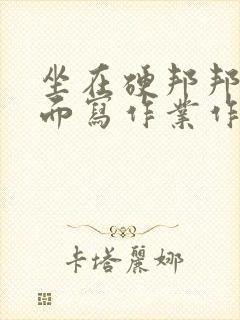 坐在硬邦邦
而寫作業作
卡塔麗娜